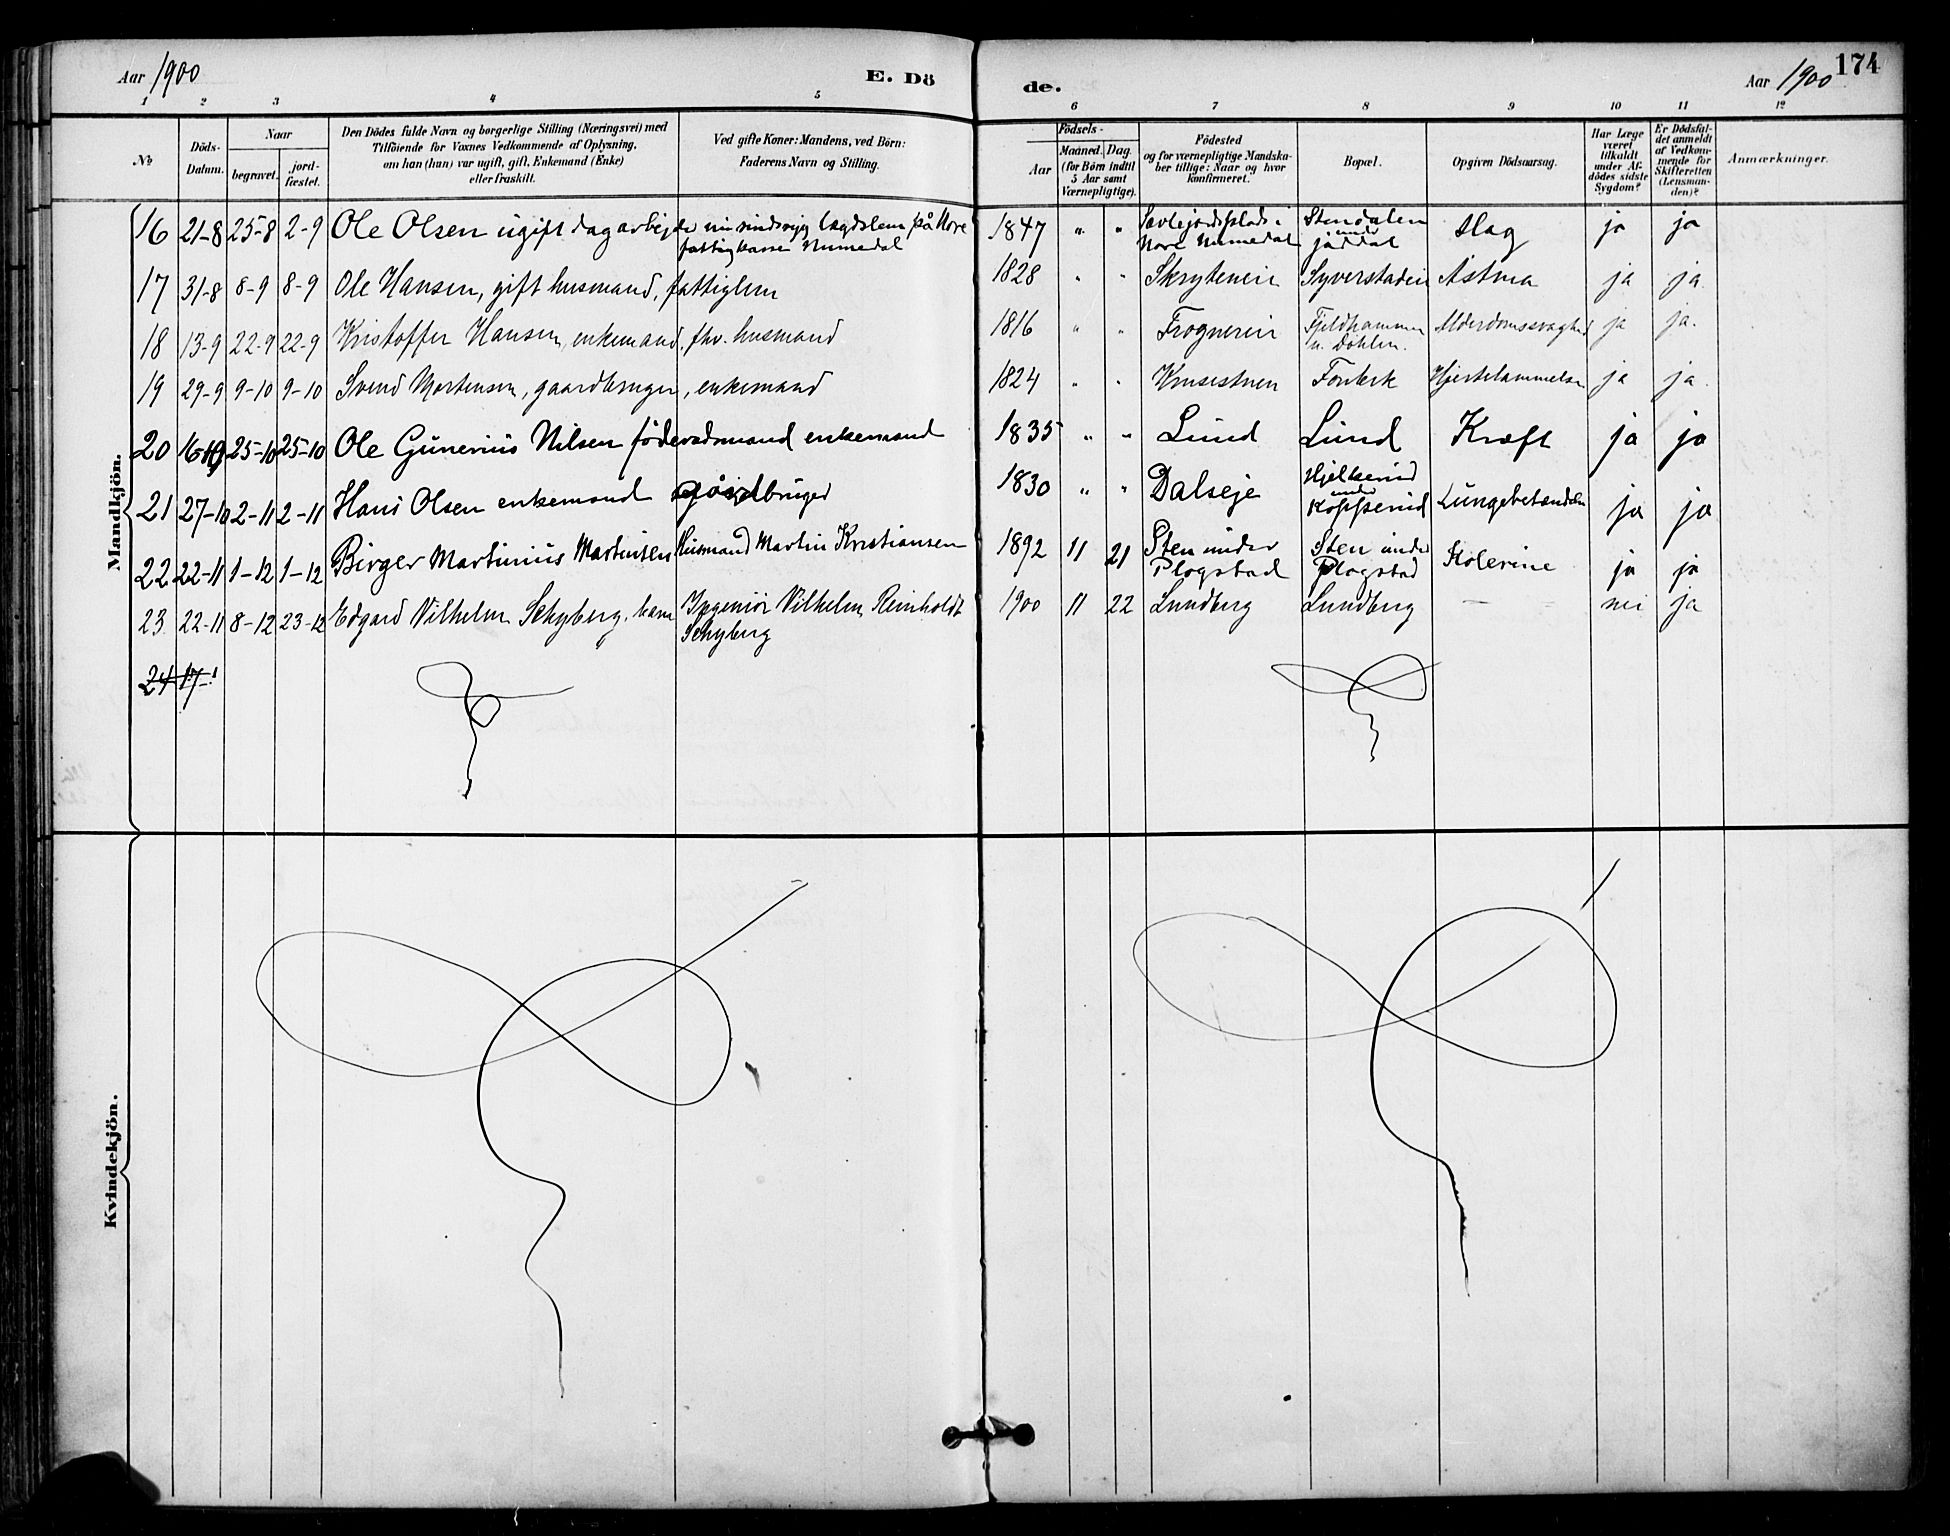 Aar 1900 E. Dö
de. Aar 1900 174
1 2 3 4 5
6 7 8 9 10 11 12
No
Döds-
Datum.
Naar
begravet.
jord-
fæstet.
Den Dödes fulde Navn og borgerlige Stilling (Næringsvei) med
Tilföiende for Voxnes Vedkommende af Oplysning,
om han (hun) var ugift, gift, Enkemand (Enke)
eller fraskilt.
Ved gifte Koner: Mandens, ved Börn:
Faderens Navn og Stilling.
Födsels-
Aar
Maaned. Dag.
(for Börn indtil
5 Aar samt
Værnepligtige).
Födested
og for værnepligtige Mandska-
ber tillige: Naar og hvor
konfirmeret.
Bopæl.
Opgiven Dödsaarsag.
Har Læge
været
tilkaldt
under Af-
dödes sidste
Sygdom?
Er Dödsfal-
det anmeldt
af Vedkom-
mende for
Skifteretten
(Lensman-
den)?
Anmærkninger.
Mandkjön.
16 21-8 25-8 2-9 Ole Olsen ugift dagarbejder sindssyg lægdslem på Nore
fattigkasse Numedal
1847 " " plads i Stendalen Slag ja ja
Nore Numedal under
17 31-8 8-9 8-9 Ole Hansen, gift husmand, fattiglem 1828 " " Skryteneie Syverstadeie Astma ja ja
18 13-9 22-9 22-9 Kristoffer Hansen, enkemand, fhv. husmand 1816 " " Frognereie Fjeldhammer Alderdomssvaghed ja ja.
u. Dahlen.
19 29-9 9-10 9-10 Svend Mortensen, gaardbruger, enkemand 1824 " " Fonbek Hjertelammelse ja ja.
20 25-10 25-10 Ole Gunerius Nilsen föderaadsmand enkemand 1835 " " Lund Lund Kræft ja ja
21 27-10 2-11 2-11 Hans Olsen enkemand gårdbruger 1830 " " Dalseje Lungebetændelse ja ja
under
Kopperud
22 22-11 1-12 1-12 Birger Martinius Martinsen Husmand Martin Kristiansen 1892 11 21 Sten under Sten under Kolerine ja ja
Plogstad Plogstad
23 22-11 8-12 23-12 Edgard Vilhelm Schyberg, barn Ingeniör Vilhelm Reinholdt 1900 11 22 Lundberg Lundberg — nei ja
Schyberg
24 17-
Kvindekjön.